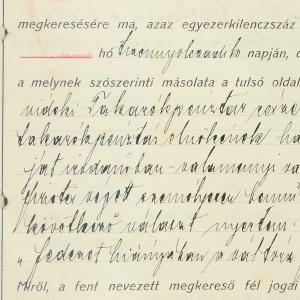 megkeresésére ma, azaz egyezerkilenczszáz
hó huszonnyolczadik napján, d
a melynek szószerinti másolata a tulsó oldal
vidéki Takarékpénztár
takarékpénztár elnökének ha
ját irodámban - valamennyi vá
személyesen
következő választ nyertem:
„fedezet hiányában a váltóra
Miről, a fent nevezett megkereső fél jogai